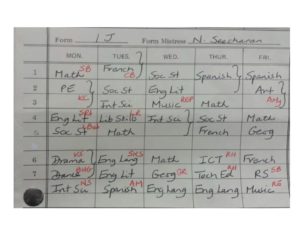 Form 1 J Form Mistress N. Seecharan
MON. TUES. WED. THUR. FRI.
1 Math SB French CB Soc St Spanish Spanish
2 PE Soc St Eng Lit Art
3 KC Int Sci Music RGP Math Amy
4 Eng Lit SRS Lib Skills LR Int Sci Soc St Math
5 Soc St Math French Geog
6 Drama VS Eng Lang SRS Math ICT RH French
7 Dance BHG Eng Lit Geog GR Tech Ed RH RS SB
Int Sci NS Spanish AM Eng Lang Eng Lang Music RG